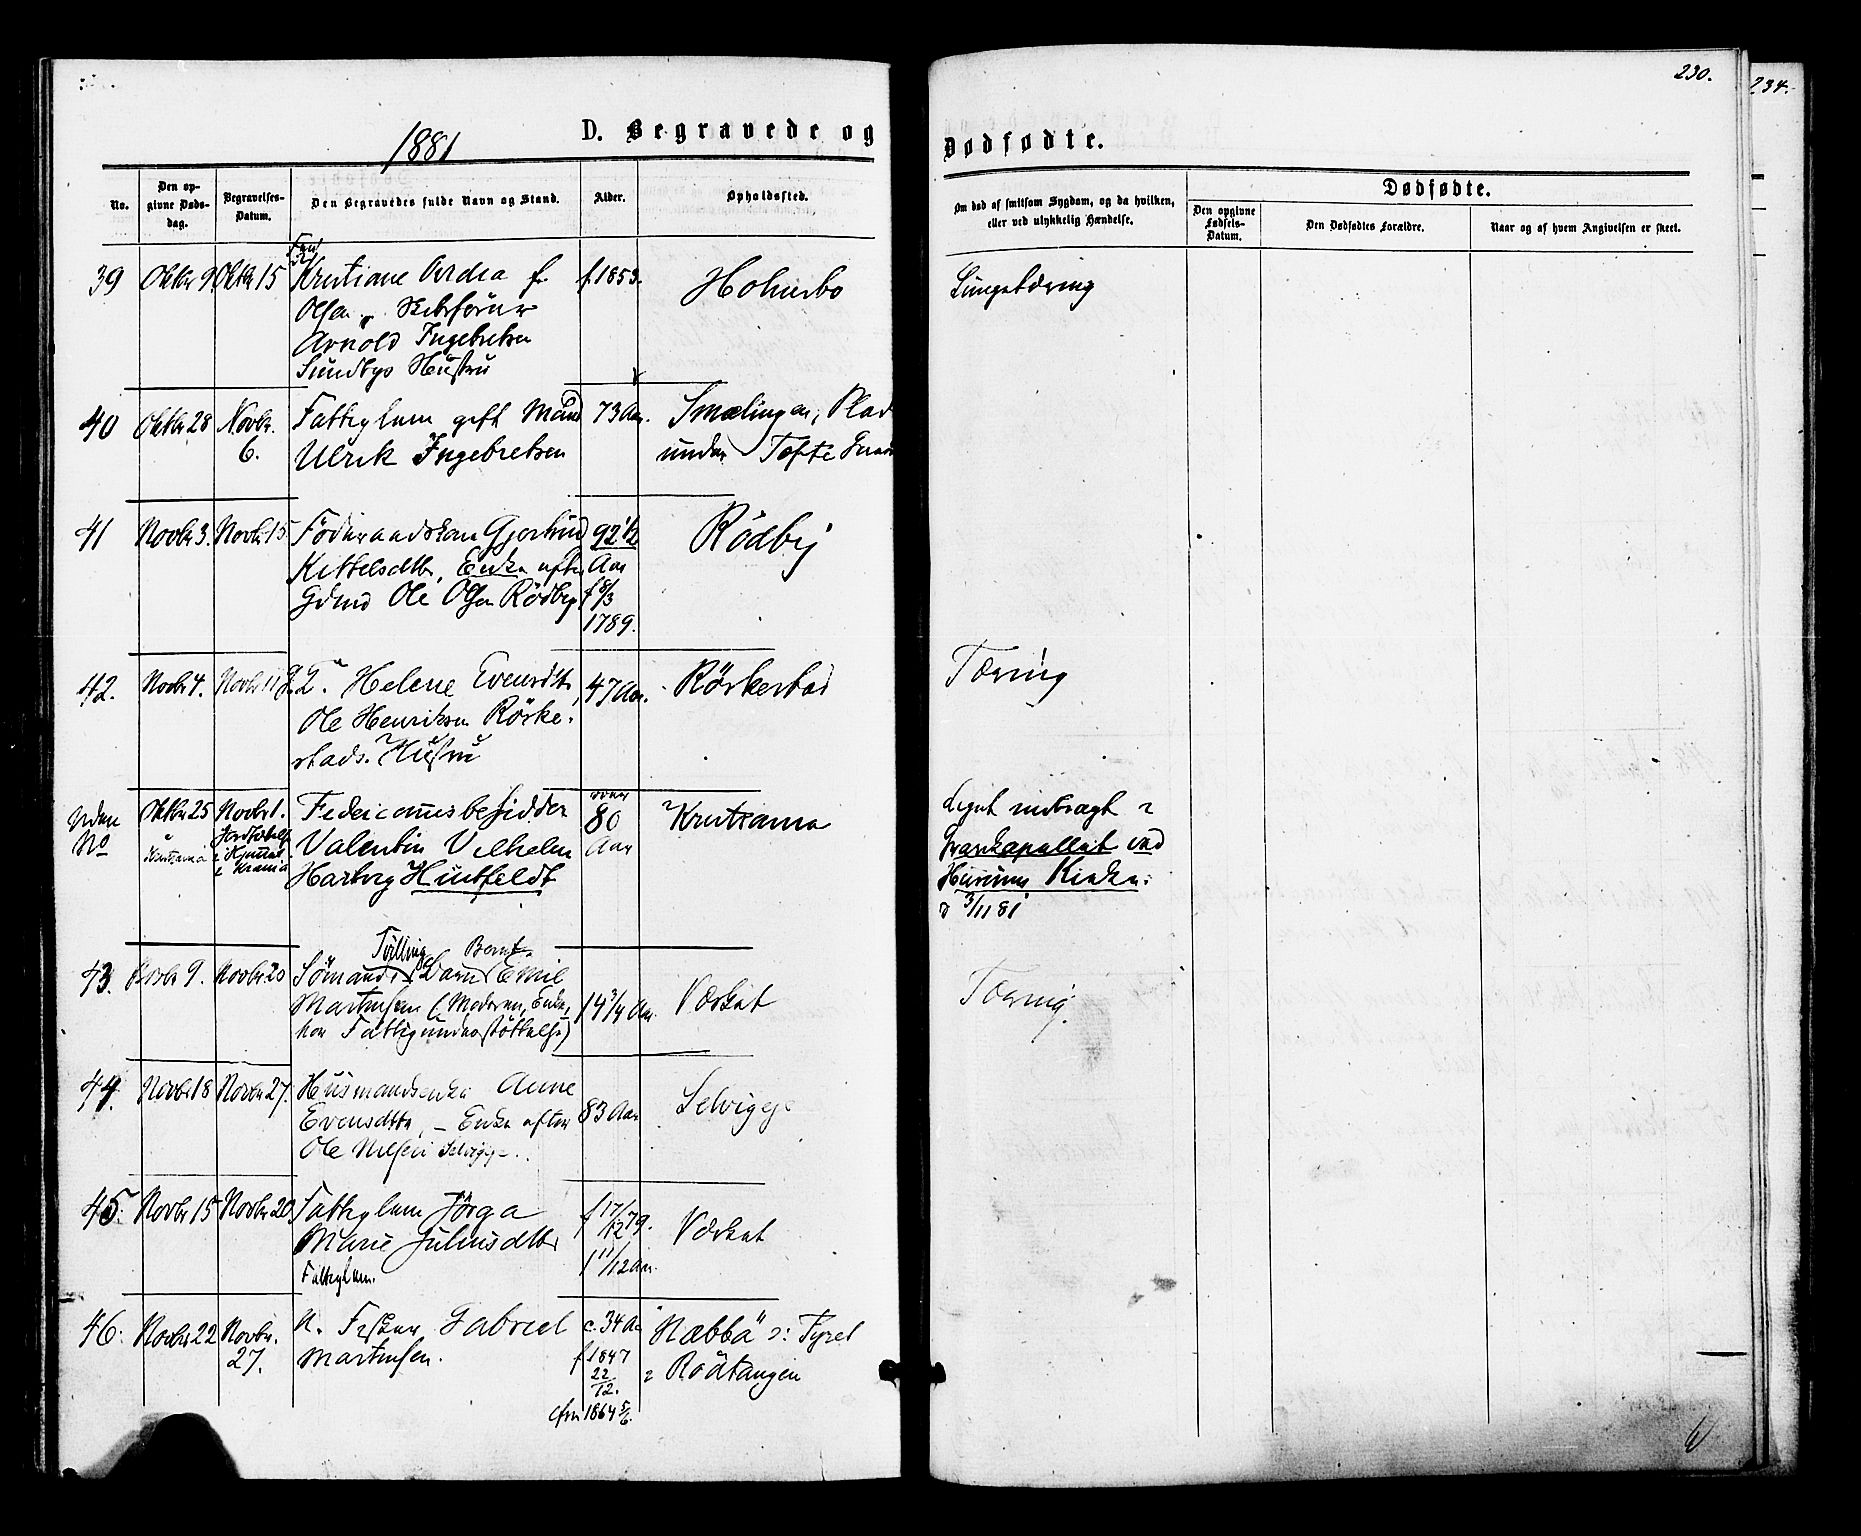 230.
234.
1881
D. Begravede og
Dødfødte.
No.
Den op-
givne Døds-
dag.
Begravelses-
Datum.
Den Begravedes fulde Navn og Stand.
Alder.
Opholdssted.
Om død af smitsom Sygdom, og da hvilken,
eller ved ulykkelig Hændelse.
Dødfødte.
Den opgivne
Fødsels-
Datum.
Den Dødfødtes Forældre.
Naar og af hvem Angivelsen er skeet.
39 Oktbr 9. Oktbr 15
Kristiane f. f. 1853.
Olsen
Arnold Ingebretsen
Sundbys Hustru
40 Oktbr 28 Novbr. 6.
Fattiglem gift Mand 73 Aar.
Ulrik Ingebretsen
under Tofte
41 Novbr 3. Novbr 15
Föderaadskone 92 1/2
Kittelsdtr, Enke efter Aar
Gdmd Ole Olsen Rödby f 8/3
1789.
Rödby
42. Novbr 4. Novbr 11
Helene Evensdtr 47 Aar. Rörkestad
Ole Henriksen Rörke-
stads Hustru
Tæring
Uden
No
Oktbr 25 Novbr 1.
over
80
Aar
Valentin Vilhelm
Hartvig Huitfeldt
Kristiania
Liget indbragt i
Gravkapellet ved
Hurums Kirke
d 3/11 81
43. Novbr 9. Novbr 20
Tvilling Bernt
Sömands Barn Emil
Martinsen (Moderen, Enke, 14 3/4 Aar. Værket
har Fattigunderstöttelse)
Tæring.
44. Novbr 18 Novbr 27.
Husmandsenke Anne
Evensdtr, – Enke efter 83 Aar
Ole Nilsen
45. Novbr 15 Novbr 20
Fattiglem f 17/12 79.
Marie Juliusdtr
1 11/12 Aar.
Fattiglem.
Værket
46. Novbr 22 Novbr. 27.
Gabriel c. 34 Aar
Martinsen. f 1847
22/12.
cfm 1864 5/6.
Næbba ɔ: Fyret
i Rödtangen